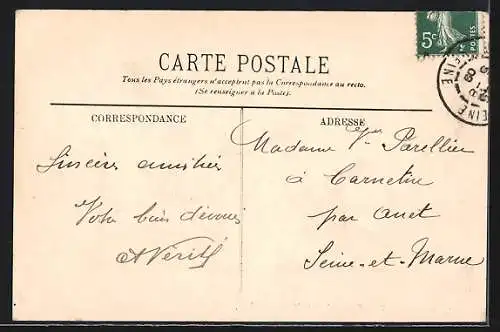 CARTE POSTALE
Tous les Pays étrangers n'acceptent pas la Correspondance au recto.
(Se renseigner à la Poste).
CORRESPONDANCE
ADRESSE
5c
POSTES
SEINE
Sincères amitiés
Votre bien dévoué
Madame Vve Parellier
à Carnetin
par Anet
Seine-et-Marne